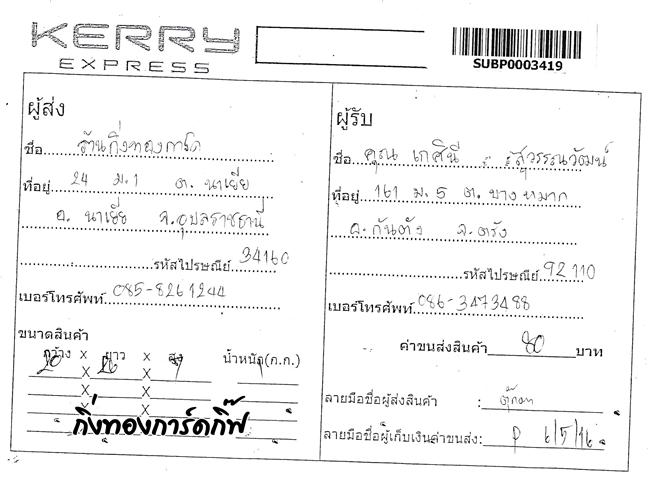 KERRY
EXPRESS
SUBP0003419
ผู้ส่ง
ชื่อ ร้านกิ่งทองการ์ด
ที่อยู่ 24 ม.1 ต. นาเยีย
อ. นาเยีย จ.อุบลราชธานี
รหัสไปรษณีย์ 34160
เบอร์โทรศัพท์ 085-8261244
ขนาดสินค้า
กว้าง x ยาว x สูง น้ำหนัก(ก.ก.)
20 x 26 x
x x
x x
กิ่งทองการ์ดกิ๊ฟ
ผู้รับ
ชื่อ คุณ เกศินี สุวรรณวัฒน์
ที่อยู่ 161 ม.5 ต. บางหมาก
อ.กันตัง จ.ตรัง
รหัสไปรษณีย์ 92110
เบอร์โทรศัพท์ 086-3473488
ค่าขนส่งสินค้า 80 บาท
ลายมือชื่อผู้ส่งสินค้า :
ลายมือชื่อผู้เก็บเงินค่าขนส่ง: 6/5/16